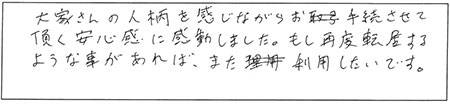 大家さんの人柄を感じながらお手続させて
頂く安心感に感動しました。もし再度転居する
ような事があれば、また利用したいです。